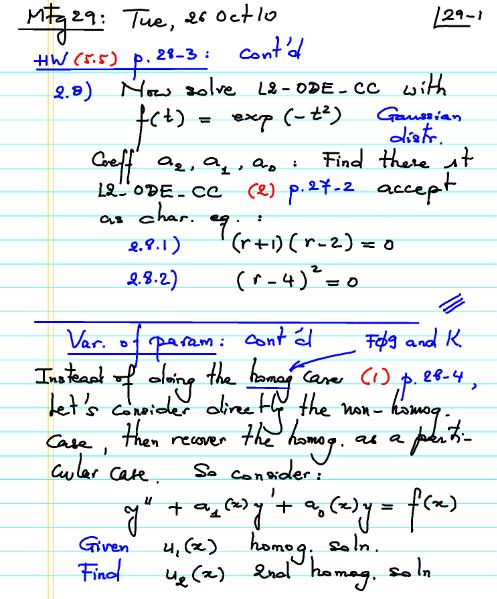 Mtg 29: Tue, 26 Oct 10 29-1
HW (5.5) p. 28-3: cont'd
2.8) Now solve L2-ODE-CC with
f(t) = exp(-t²) Gaussian distr.
Coeff a₂, a₁, a₀: Find there st
L2-ODE-CC (2) p. 27-2 accept
as char. eq.:
2.8.1) (r+1)(r-2) = 0
2.8.2) (r-4)² = 0
Var. of param: cont'd F∅9 and K
Instead of doing the homog case (1) p. 28-4,
Let's consider directly the non-homog.
case, then recover the homog. as a parti-
cular case. So consider:
y" + a₁(x)y' + a₀(x)y = f(x)
Given u₁(x) homog. soln.
Find u₂(x) 2nd homog. soln